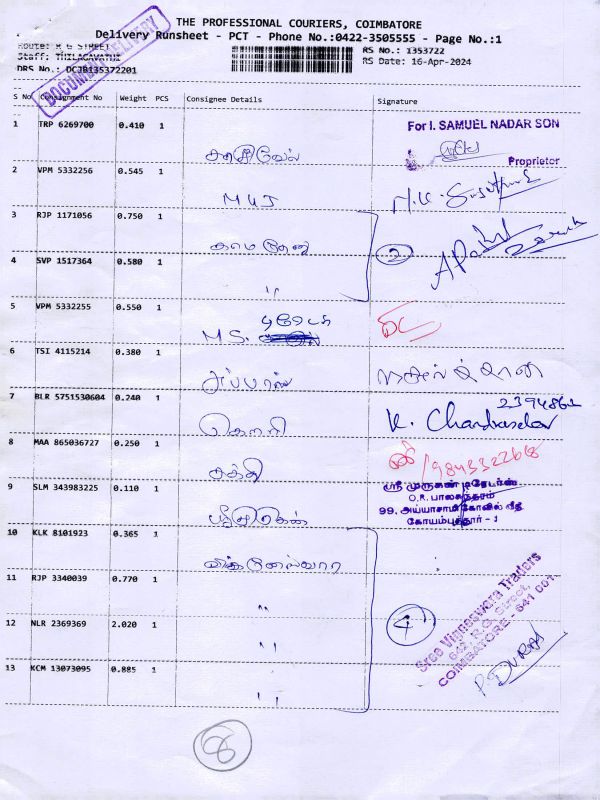 THE PROFESSIONAL COURIERS, COIMBATORE
Delivery Runsheet - PCT - Phone No.:0422-3505555 - Page No.:1
Route: R G STREET
RS No.: 1353722
Staff: THILAGAVATHI
RS Date: 16-Apr-2024
DRS No.: DCJB135372201
DOCUMENT DELIVERY
S No Consignment No Weight PCS Consignee Details Signature
1 TRP 6269700 0.410 1
For I. SAMUEL NADAR SON
Proprietor
2 VPM 5332256 0.545 1
3 RJP 1171056 0.750 1 காமதேனு
2
4 SVP 1517364 0.580 1 "
5 VPM 5332255 0.550 1 M S.
6 TSI 4115214 0.380 1 அப்பாஸ்
7 BLR 5751530604 0.240 1
K. Chandrasekar
8 MAA 865036727 0.250 1 சக்தி
9 SLM 343983225 0.110 1
ஸ்ரீ முருகன் டிரேடர்ஸ்
O.R. பாலசுந்தரம்
99, அய்யாசாமி கோவில் வீதி
கோயம்புத்தூர் - 1
10 KLK 8101923 0.365 1 விக்னேஸ்வரா
11 RJP 3340039 0.770 1 "
4
12 NLR 2369369 2.020 1 "
13 KCM 13073095 0.885 1 "
Sree Vigneswara Traders
R.G. Street,
COIMBATORE - 641 001.
8